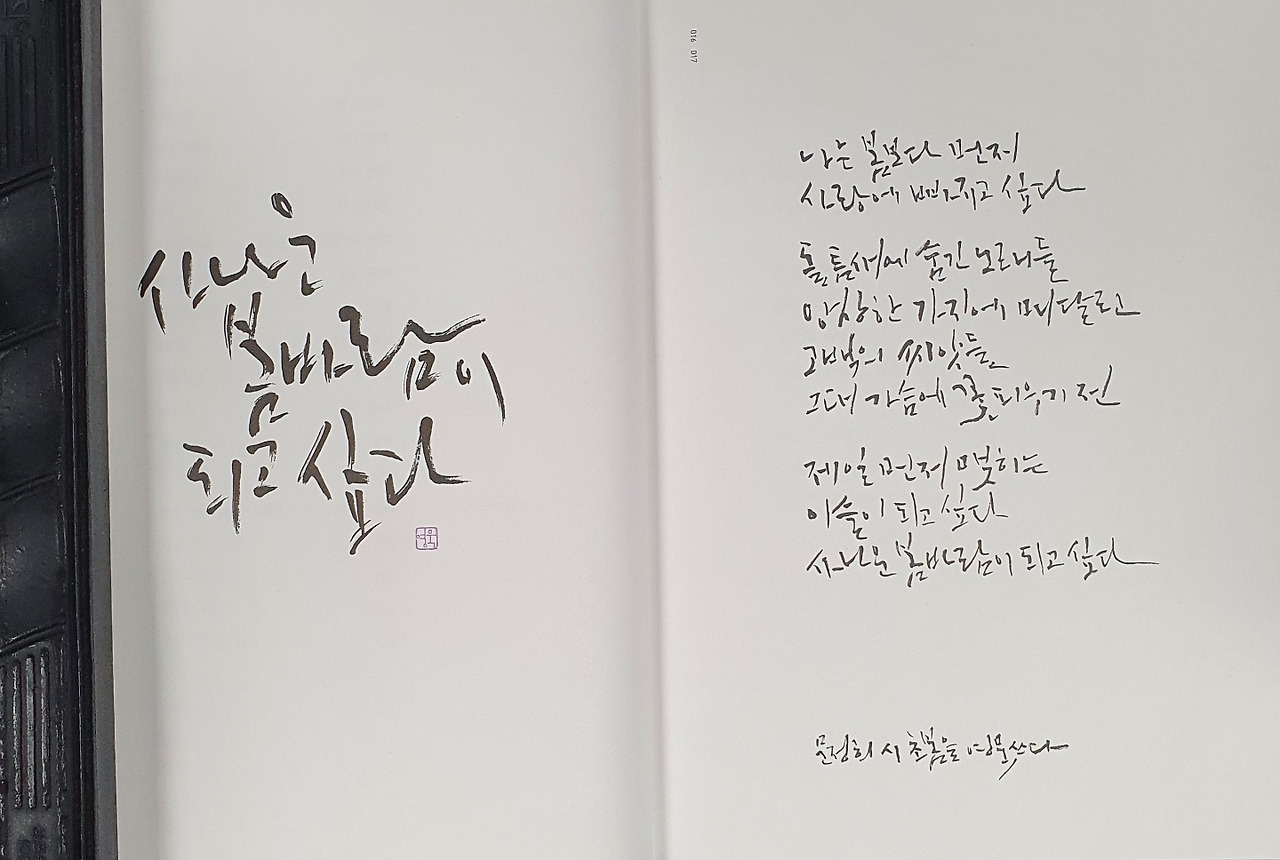 사나운
봄바람이
되고 싶다
016 017
나는 봄보다 먼저
사랑에 빠지고 싶다
흙 틈새에 숨긴 노래들
앙상한 가지에 매달고
고백의 씨앗들
그대 가슴에 꽃 피우기 전
제일 먼저 맺히는
이슬이 되고 싶다
사나운 봄바람이 되고 싶다
문정희 시 초봄을 쓰다